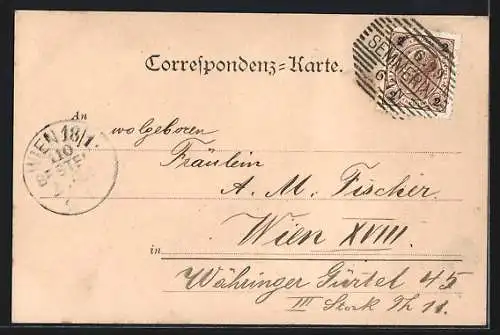 Correspondenz-Karte.
SEMMERING
6
2 2
WIEN 18/1.
An
wolgeboren
Fräulein
A. M. Fischer
Wien XVIII.
in
Währinger Gürtel 45
III Stock Th 11.